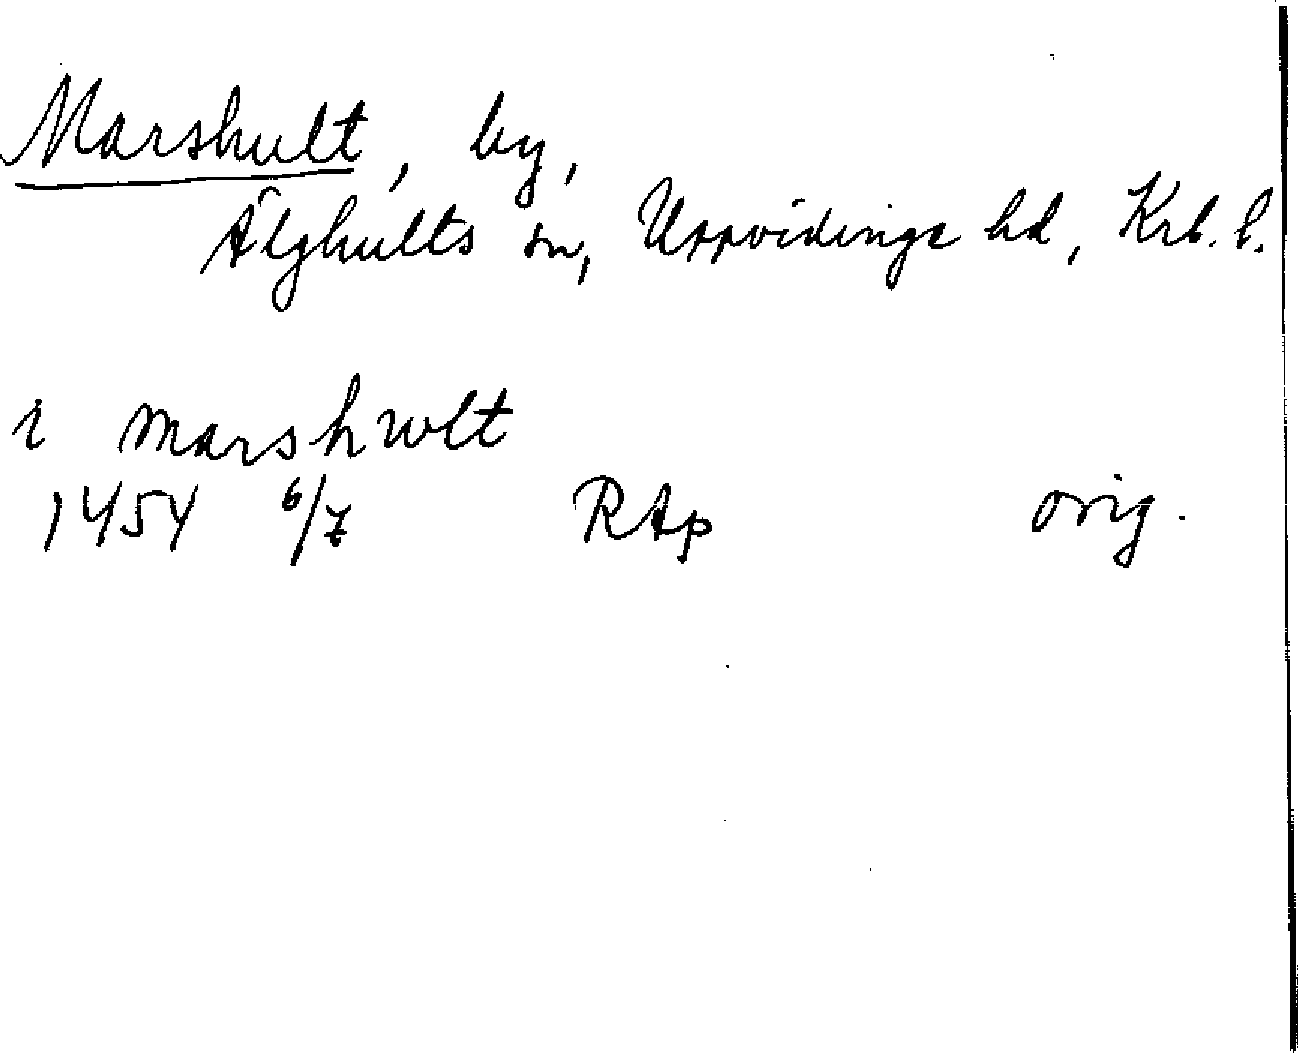 Marshult, by,
Älghults sn, Uppvidinge hd, Krb. l.
i marshwlt
1454 6/7 RAp orig.